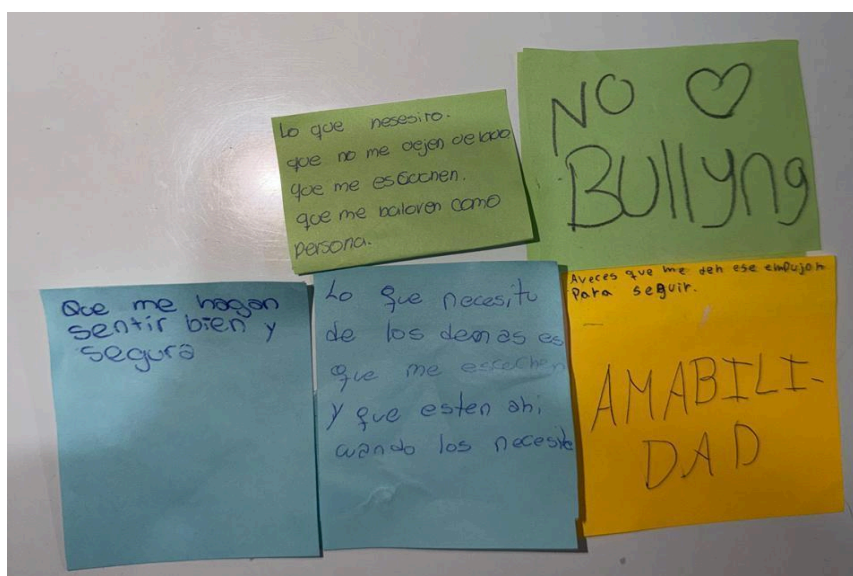 Lo que nesesito.
que no me dejen de lado
que me escuchen.
que me baloren como
persona.
NO
Bullyng
Que me hagan
sentir bien y
segura
Lo que necesito
de los demas es
que me escuchen
y que esten ahi
cuando los necesite
Aveces que me den ese empujon
Para seguir.
AMABILI-
DAD